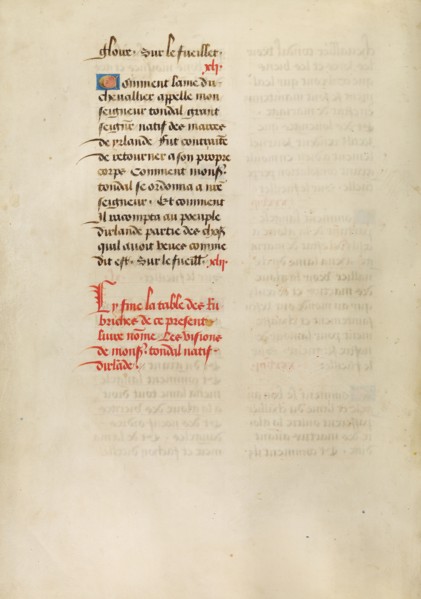 gloire. Sur le fueillet.
xli.
Comment lame du
chevallier appelle mon
seigneur tondal grant
seignr natif des marces
de yrlande fut contraite
de retourner a son propre
corps Comment monsr
tondal se ordonna a nre
seigneur. Et comment
Il racompta au poeuple
dirlande partie des chos
quil auoit veues comme
dit est. Sur le fueill. xlij.
Cy fine la table des Ru
briches de ce present
liure nome. Les visions
de monsr tondal natif.
dirlade.